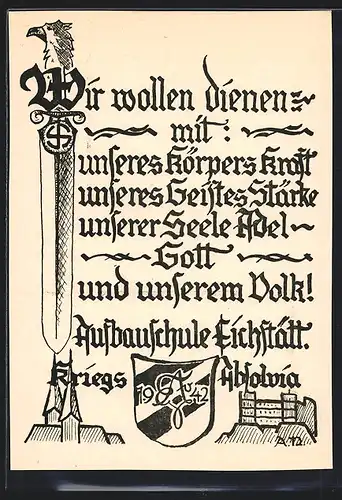 Wir wollen dienen
mit:
unseres Körpers Kraft
unseres Geistes Stärke
unserer Seele Adel
Gott
und unserem Volk!
Aufbauschule Eichstätt.
Kriegs Absolvia
19 42